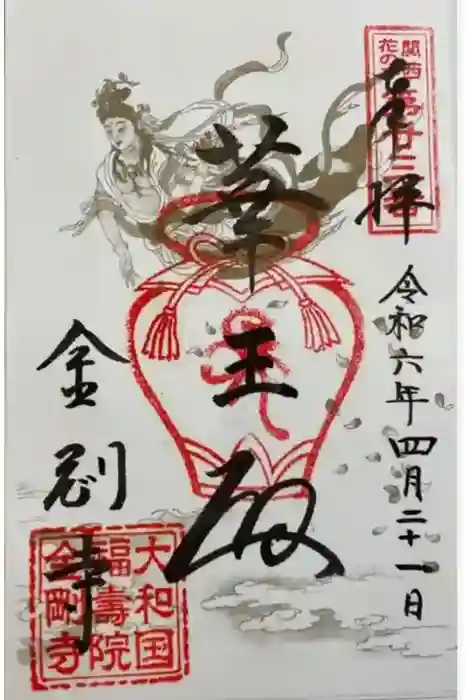 奉拝
令和六年四月二十一日
関西
花の寺
第廿三番
華王殿
金剛寺
大和国
福壽院
金剛寺